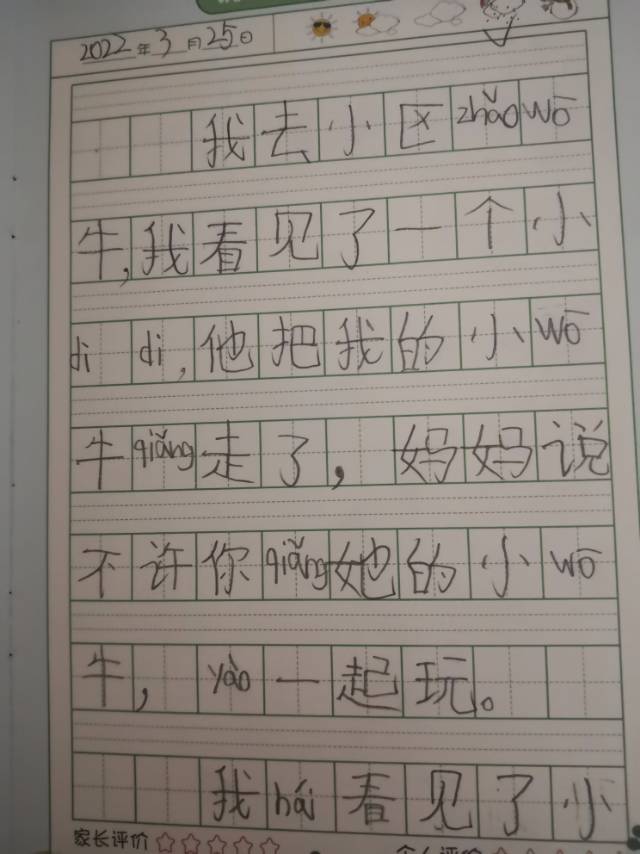 2022年3月25日
我去小区zhǎowō
牛,我看见了一个小
dì di,他把我的小wō
牛qiǎng走了,妈妈说
不许你qiǎng她的小wō
牛,yào一起玩。
我hái看见了小
家长评价